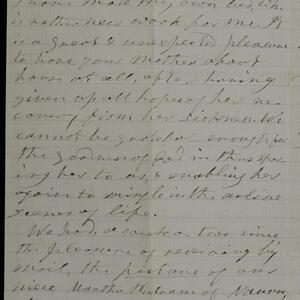 I have made my own bed, &
is rather new work for me. It
is a great & unexpected pleasure
to have your Mother about
house at all, after having
given up all hopes of her re-
covery from her sickness. We
cannot be grateful enough for
the goodness of God in thus spar
ing her to us, & enabling her
again to mingle in the active
scenes of life.
We had, a week or two since
the pleasure of receiving by
mail, the picture of our
niece Martha of